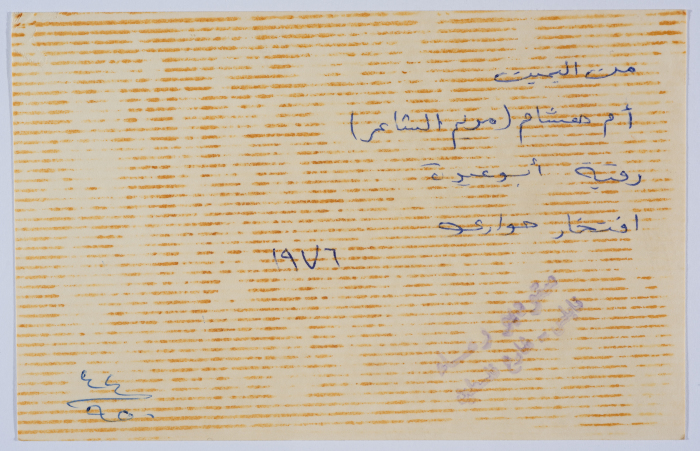 من اليمين
أم هشام (مريم الشاعر)
رقية أبو عيدة
افتخار حواري
١٩٧٦
٤٤
٩٥٠